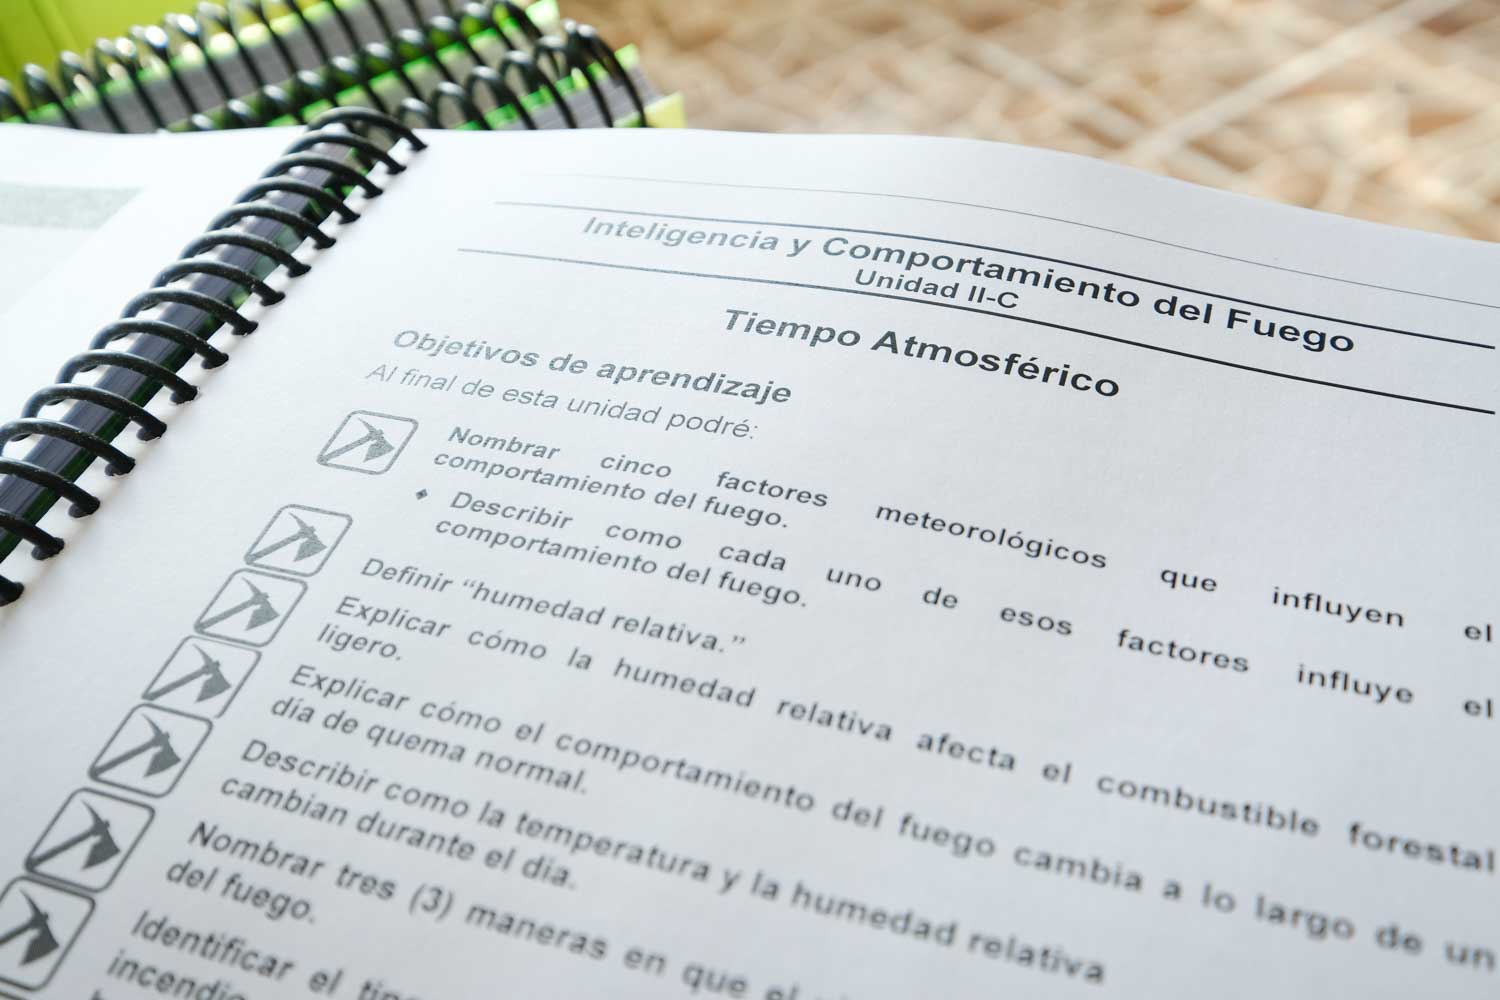 Inteligencia y Comportamiento del Fuego
Unidad II-C
Tiempo Atmosférico
Objetivos de aprendizaje
Al final de esta unidad podré:
Nombrar cinco factores meteorológicos que influyen el
comportamiento del fuego.
Describir como cada uno de esos factores influye el
comportamiento del fuego.
Definir “humedad relativa.”
Explicar cómo la humedad relativa afecta el combustible forestal
ligero.
Explicar cómo el comportamiento del fuego cambia a lo largo de un
día de quema normal.
Describir como la temperatura y la humedad relativa
cambian durante el día.
Nombrar tres (3) maneras en que el
del fuego.
Identificar el
incendio